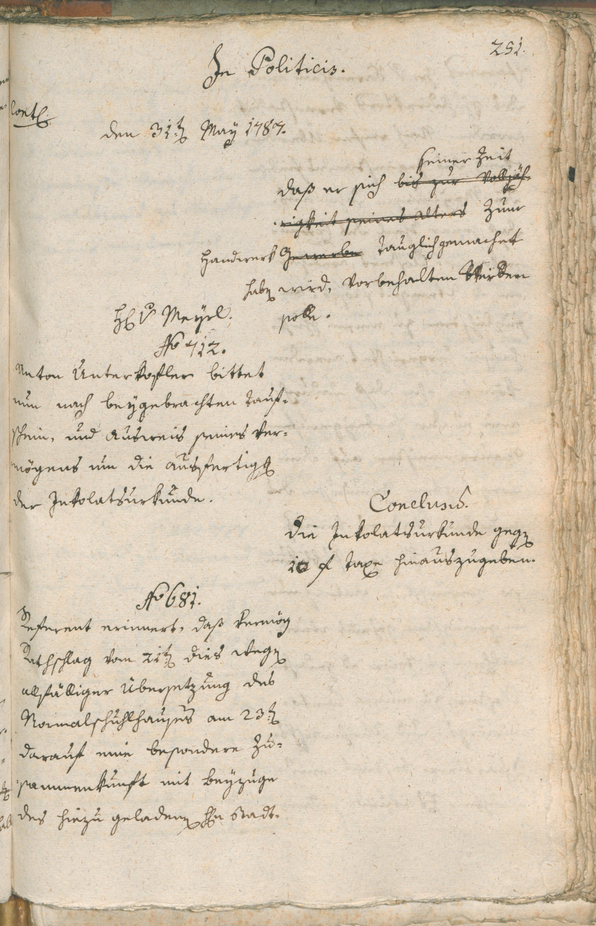 251.
In Politicis.
Cont.
den 31ten May 1787.
seiner Zeit
daß er sich bis zur Volljäh-
rigkeit seines alters zum
Handwerk Gewerbe tauglich gemachet
haben wird, vorbehalten bleiben
solle.
H. v. Meyrl.
No 412.
Anton Unterkofler bittet
nun nach beygebrachten Tauf-
schein, und Ausweis seines Ver-
mögens um die Ausfertigg
der Inkolatsurkunde.
Conclusum.
Die Inkolatsurkunde gegen
10 f Taxe hinauszugeben.
No 681.
Referent erinnert, daß vermög
Rathschlag vom 21ten dies wegen
allfälliger Übersetzung des
Normalschuhlhauses am 23ten
darauf eine besondere Zu-
sammenkunft mit Beyzuge
des hiezu geladenen Hn Stadt-